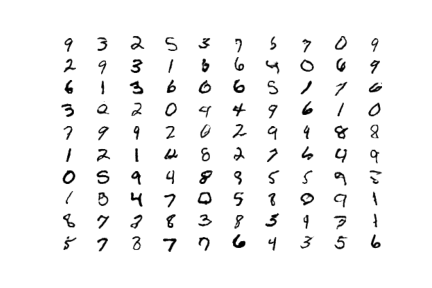 9 3 2 5 3 7 5 7 0 9
2 9 3 1 6 6 4 0 6 9
6 1 3 6 0 6 5 1 7 6
3 2 2 0 4 4 9 6 1 0
7 9 9 2 0 2 9 9 8 8
1 2 1 4 8 2 7 6 4 9
0 5 9 4 8 9 5 5 9
1 3 4 7 0 5 8 0 9 1
8 7 2 8 3 8 3 9 7 1
5 7 3 7 7 6 4 3 5 6